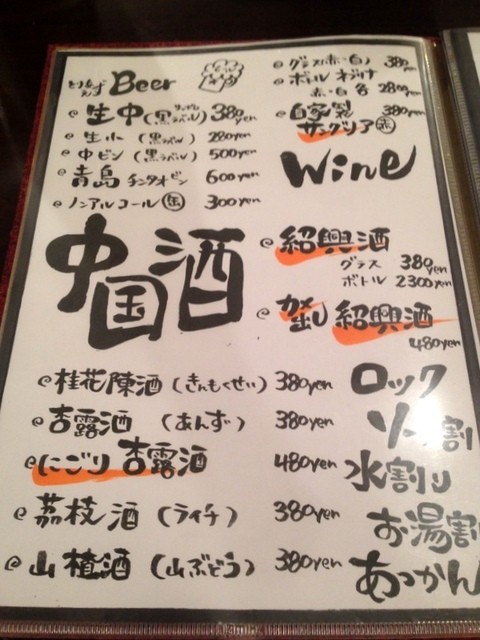 とりあえず Beer
生中(黒ラベル) 380yen
生小 (黒ラベル) 280yen
中ビン (黒ラベル) 500yen
青島 チンタオビン 600yen
ノンアルコール 300yen
グラス(赤・白) 380yen
ボトル
赤・白 各 2800yen
自家製 380yen
サングリア
Wine
中国酒
紹興酒
グラス 380yen
ボトル 2300yen
カメ出し 紹興酒
480yen
桂花陳酒 (きんもくせい) 380yen
杏露酒 (あんず) 380yen
にごり杏露酒 480yen
荔枝酒 (ライチ) 380yen
山楂酒 (山ぶどう) 380yen
ロック
ソーダ割
水割り
お湯割
あつかん